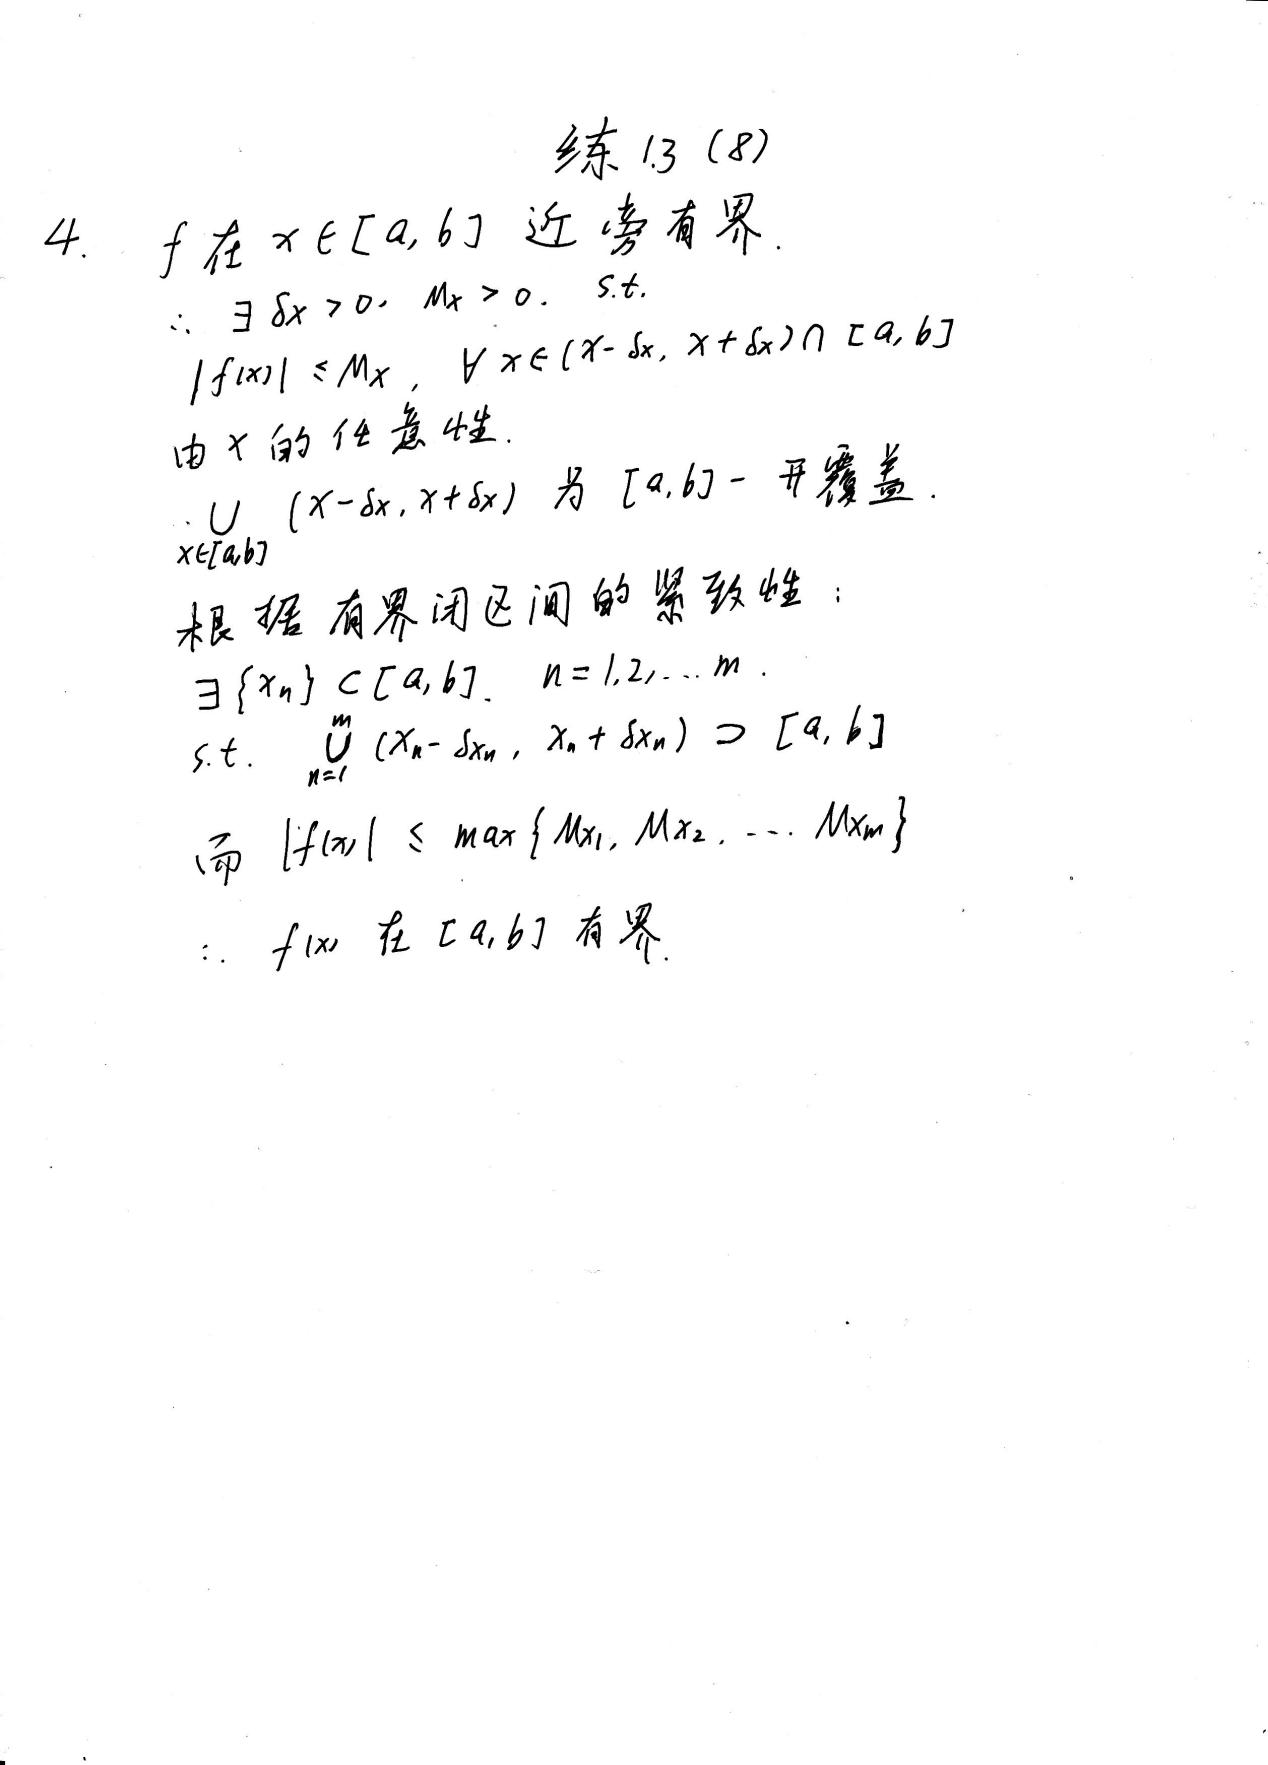 练 1.3 (8)
4. f 在 x∈[a,b] 近旁有界.
∴ ∃ δx > 0. Mx > 0. s.t.
|f(x)| ≤ Mx, ∀ x∈(x-δx, x+δx)∩[a,b]
由 x 的任意性.
∴ ∪ (x-δx, x+δx) 为 [a,b]一开覆盖.
x∈[a,b]
根据有界闭区间的紧致性:
∃{xn}⊂[a,b]. n=1,2,...m.
s.t. ∪_{n=1}^{m} (xn-δxn, xn+δxn) ⊃ [a,b]
而 |f(x)| ≤ max{Mx1, Mx2, ... Mxm}
∴ f(x) 在 [a,b] 有界.